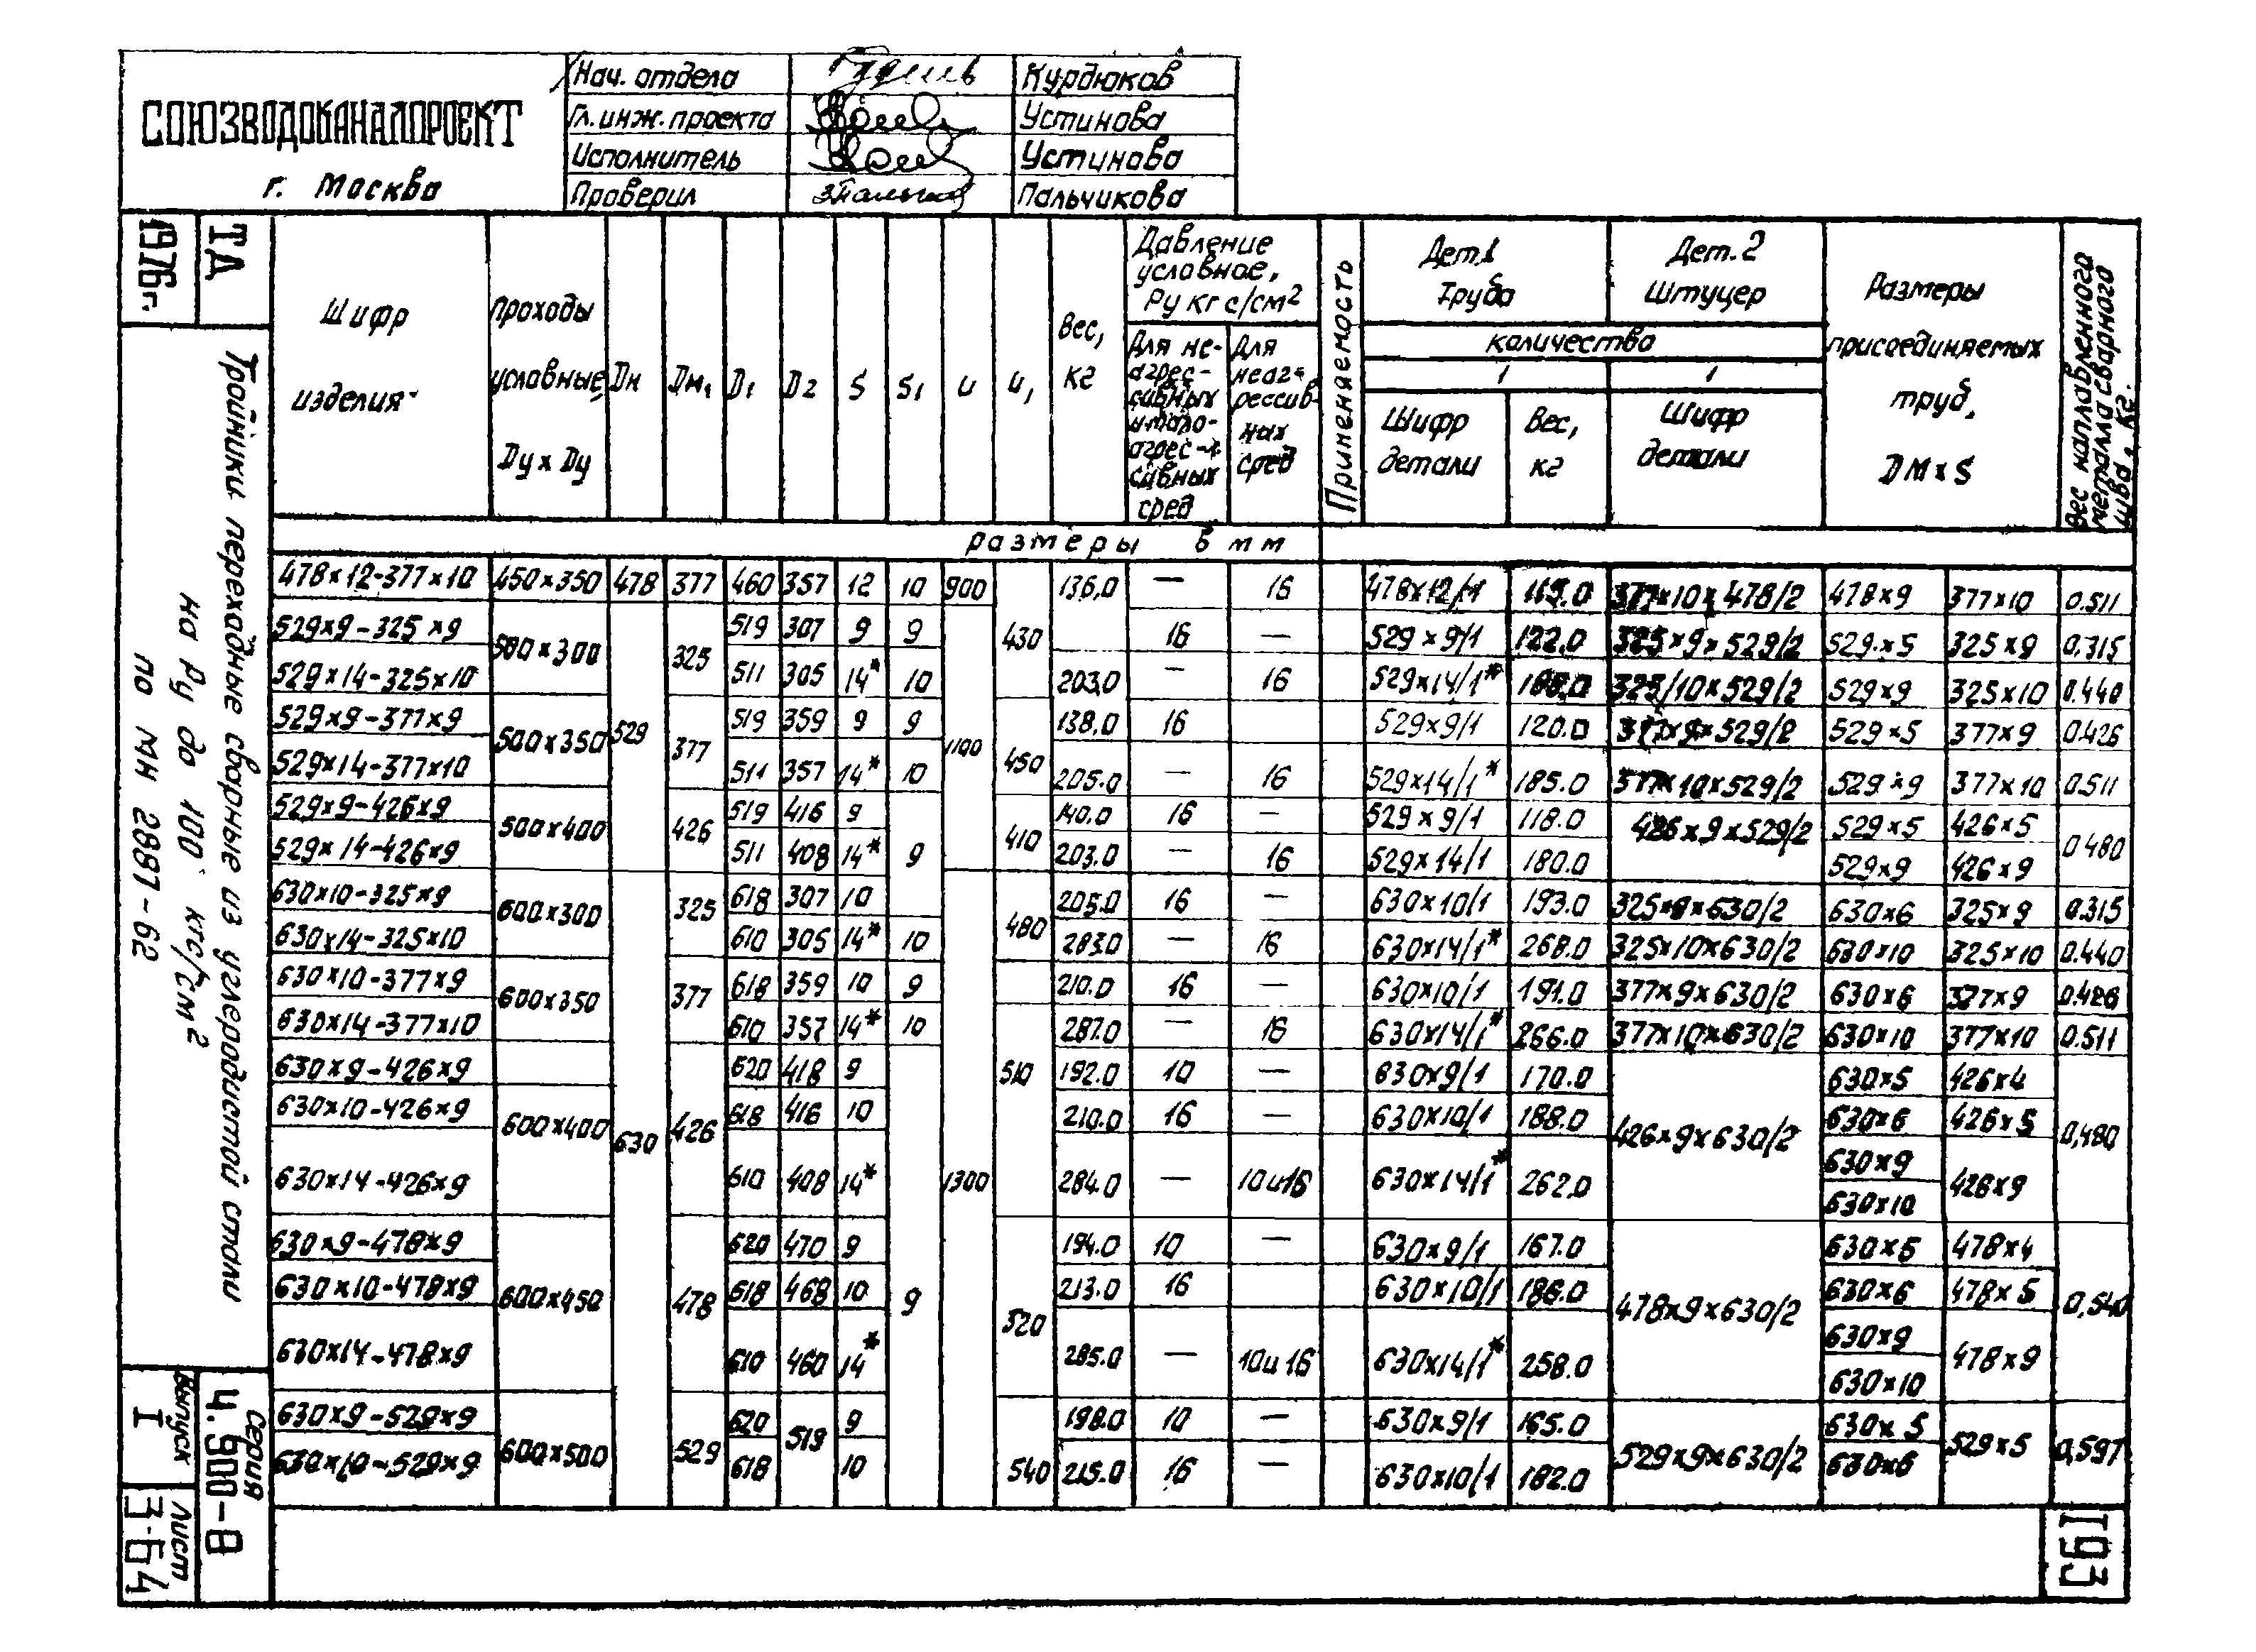 СОЮЗВОДОКАНАЛПРОЕКТ
г. Москва
Нач. отдела Курдюков
Гл. инж. проекта Устинова
Исполнитель Устинова
Проверил Пальчикова
ТД
1976г.
Тройники переходные сварные из углеродистой стали
на Ру до 100 кгс/см2
по МН 2887-62
Серия
4.900-8
Выпуск
I
Лист
3-64
193
Шифр изделия
Проходы условные, Dу х Dу
Dн
Dн1
D1
D2
S
S1
и
и1
Вес, кг
Давление условное, Ру кгс/см2
Для неагрессивных и малоагрессивных сред
Для неагрессивных сред
Применяемость
Дет.1 Труба
Дет.2 Штуцер
количество
1 1
Шифр детали
Вес, кг
Шифр детали
Размеры присоединяемых труб,
DнхS
Вес наплавленного металла сварного шва, кг.
размеры в мм
478х12-377х10 450х350 478 377 460 357 12 10 900 136,0 — 16 478х12/1 115.0 377х10х478/2 478х9 377х10 0.511
529х9-325х9 500х300 529 325 519 307 9 9 1100 430 16 — 529х9/1 122.0 325х9х529/2 529х5 325х9 0.315
529х14-325х10 511 305 14* 10 203.0 — 16 529х14/1* 325/10х529/2 529х9 325х10 0.440
529х9-377х9 500х350 377 519 359 9 9 450 138.0 16 529х9/1 120.0 377х9х529/2 529х5 377х9 0.426
529х14-377х10 511 357 14* 10 205.0 — 16 529х14/1* 185.0 377х10х529/2 529х9 377х10 0.511
529х9-426х9 500х400 426 519 416 9 9 410 140.0 16 — 529х9/1 118.0 426х9х529/2 529х5 426х5 0480
529х14-426х9 511 408 14* 203.0 — 16 529х14/1 180.0 529х9 426х9
630х10-325х9 600х300 630 325 618 307 10 1300 480 205.0 16 — 630х10/1 193.0 325х9х630/2 630х6 325х9 0.315
630х14-325х10 610 305 14* 10 283.0 — 16 630х14/1* 268.0 325х10х630/2 630х10 325х10 0.440
630х10-377х9 600х350 377 618 359 10 9 210.0 16 — 630х10/1 191.0 377х9х630/2 630х6 377х9 0.426
630х14-377х10 610 357 14* 10 510 287.0 — 16 630х14/1* 266.0 377х10х630/2 630х10 377х10 0.511
630х9-426х9 600х400 426 620 418 9 9 192.0 10 — 630х9/1 170.0 426х9х630/2 630х5 426х4 0,480
630х10-426х9 618 416 10 210.0 16 — 630х10/1 188.0 630х6 426х5
630х14-426х9 610 408 14* 284.0 — 10и16 630х14/1* 262.0 630х9 426х9
630х10
630х9-478х9 600х450 478 620 470 9 520 194.0 10 — 630х9/1 167.0 478х9х630/2 630х5 478х4 0,540
630х10-478х9 618 468 10 213.0 16 630х10/1 186.0 630х6 478х5
630х14-478х9 610 460 14* 285.0 — 10и16 630х14/1* 258.0 630х9 478х9
630х10
630х9-529х9 600х500 529 620 519 9 540 198.0 10 — 630х9/1 165.0 529х9х630/2 630х5 529х5 0,597
630х10-529х9 618 10 215.0 16 — 630х10/1 182.0 630х6